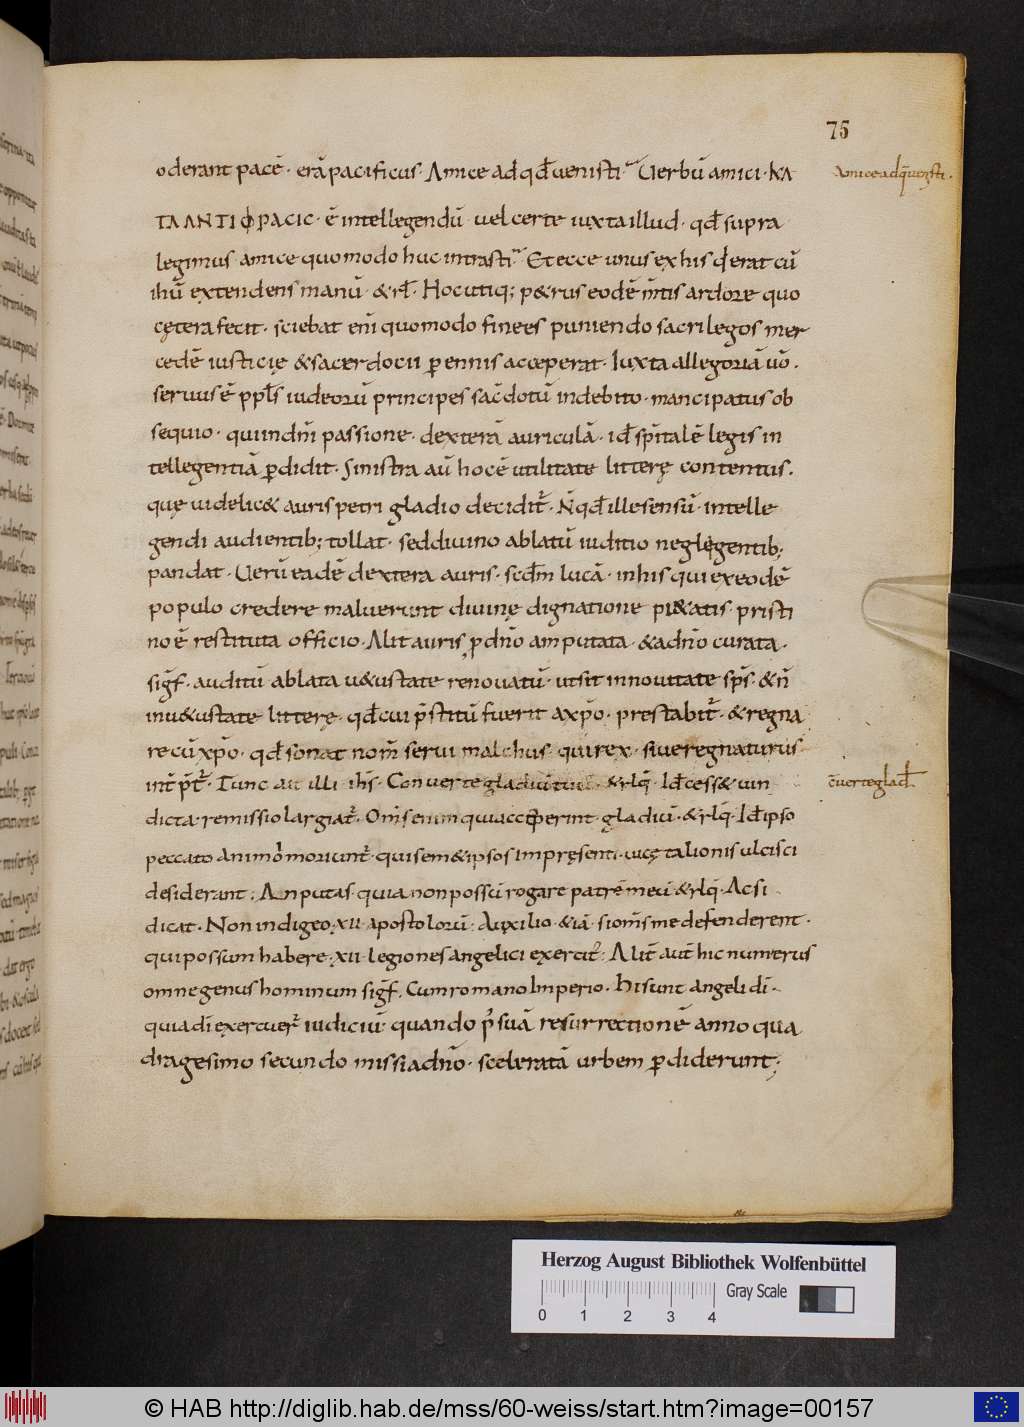 75
oderant pacē · erā pacificus · Amice ad qđ uenisti · Uerbū amici · ΚΑ
ΤΑ ΑΝΤΙΦΡΑCΙC · ē intellegendū · uel certe iuxta illud · qđ supra
legimus amice quomodo huc intrasti · Et ecce unus ex his q erat cū
ihū extendens manū · &rl · Hoc utiq; p&rus eodē mtis ardore quo
cętera fecit · sciebat eni quomodo finees puniendo sacrilegos mer
cedē iusticię & sacerdocii pennis acceperat · Iuxta allegoriā uō ·
seruus ē ppls iudeorū principes sacdotū indebito · mancipatus ob
sequio · qui in dni passione · dexterā auriculā · id spitalē legis in
tellegentiā pdidit · Sinistra aū hoc ē utilitate litterę contentus ·
quę uidelic& auris petri gladio decidit · N̄ qđ ille sensū · intelle
gendi audientib; tollat · sed diuino ablatū iuditio neglegentib;
pandat · Uerū eadē dextera auris · scdm lucā · in his qui ex eodē
populo credere maluerunt diuinę dignatione pi&atis · pristi
no ē restituta officio · Alit auris p dno amputata · & a dno curata ·
sigf · auditū ablata u&ustate renouatū · ut sit in nouitate sps · & n̄
in u&ustate litterę · qđ cui pstitū fuerit a xpo · prestabit · & regna
re cū xpo · qđ sonat nom serui malchus · qui rex · siue regnaturus
int̄pt̄ · Tunc ait illi ihs · Conuerte gladiū tuū · &rlq · Id cess& uin
dicta · remissio largiat · Oms enim qui acceperint · gladiū · &rlq · Id ipso
peccato animo moriunt · qui sem& ipsos impręsenti · uicę talionis ulcisci
desiderant : An putas · quia non possū rogare patrē meū &rlq · Ac si
dicat · Non indigeo · xii · apostolorū · Auxilio · & iā · si oms me defenderent ·
qui possum habere · xii · legiones angelici exercit · Alit aut hic numerus
omne genus hominum sigf · Cum romano Imperio · Hi sunt angeli di ·
quia di exercuer iudiciū · quando p suā resurrectionē anno qua
dragesimo secundo missi a dno · sceleratā urbem pdiderunt ;
Amice ad q uenisti ·
c̄uerte glad
Herzog August Bibliothek Wolfenbüttel
Gray Scale
0 1 2 3 4
© HAB http://diglib.hab.de/mss/60-weiss/start.htm?image=00157